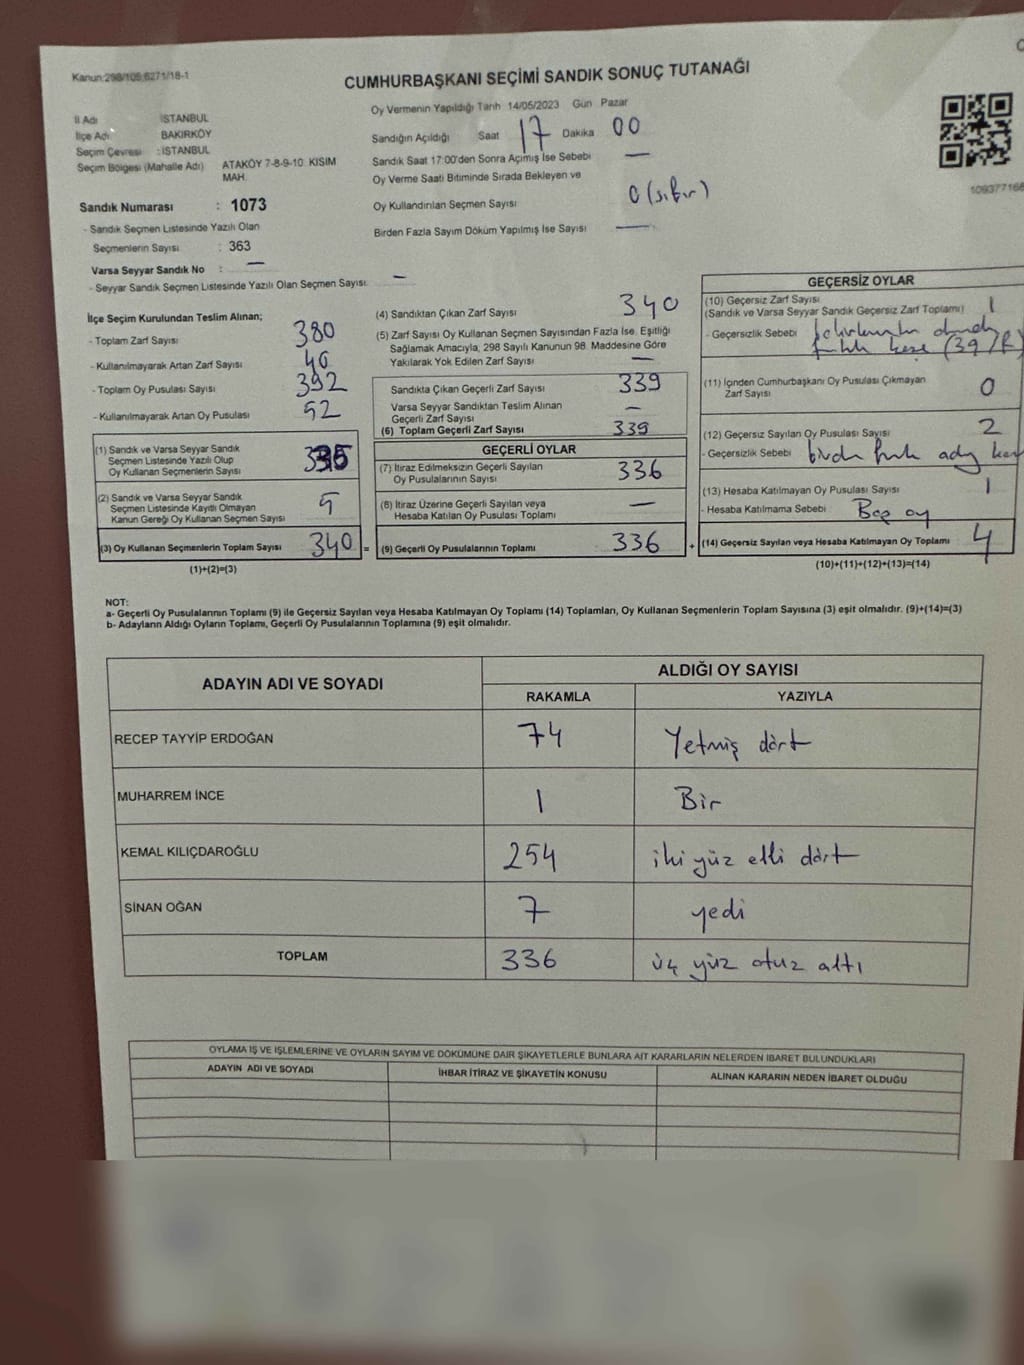 Kanun:298/105,6271/18-1
CUMHURBAŞKANI SEÇİMİ SANDIK SONUÇ TUTANAĞI
İl Adı İSTANBUL
İlçe Adı BAKIRKÖY
Seçim Çevresi : İSTANBUL
Seçim Bölgesi (Mahalle Adı) ATAKÖY 7-8-9-10. KISIM MAH.
Sandık Numarası : 1073
- Sandık Seçmen Listesinde Yazılı Olan
Seçmenlerin Sayısı : 363
Varsa Seyyar Sandık No : —
- Seyyar Sandık Seçmen Listesinde Yazılı Olan Seçmen Sayısı: —
Oy Vermenin Yapıldığı Tarih 14/05/2023 Gün Pazar
Sandığın Açıldığı Saat 17 Dakika 00
Sandık Saat 17:00'den Sonra Açımış İse Sebebi —
Oy Verme Saati Bitiminde Sırada Bekleyen ve
Oy Kullandırılan Seçmen Sayısı 0 (sıfır)
Birden Fazla Sayım Döküm Yapılmış İse Sayısı —
109377168
İlçe Seçim Kurulundan Teslim Alınan;
- Toplam Zarf Sayısı 380
- Kullanılmayarak Artan Zarf Sayısı 40
- Toplam Oy Pusulası Sayısı 392
- Kullanılmayarak Artan Oy Pusulası 52
(1) Sandık ve Varsa Seyyar Sandık
Seçmen Listesinde Yazılı Olup
Oy Kullanan Seçmenlerin Sayısı 335
(2) Sandık ve Varsa Seyyar Sandık
Seçmen Listesinde Kayıtlı Olmayan
Kanun Gereği Oy Kullanan Seçmen Sayısı 5
(3) Oy Kullanan Seçmenlerin Toplam Sayısı 340 =
(1)+(2)=(3)
(4) Sandıktan Çıkan Zarf Sayısı 340
(5) Zarf Sayısı Oy Kullanan Seçmen Sayısından Fazla İse, Eşitliği
Sağlamak Amacıyla, 298 Sayılı Kanunun 98. Maddesine Göre
Yakılarak Yok Edilen Zarf Sayısı —
Sandıkta Çıkan Geçerli Zarf Sayısı 339
Varsa Seyyar Sandıktan Teslim Alınan
Geçerli Zarf Sayısı —
(6) Toplam Geçerli Zarf Sayısı 339
GEÇERLİ OYLAR
(7) İtiraz Edilmeksizin Geçerli Sayılan
Oy Pusulalarının Sayısı 336
(8) İtiraz Üzerine Geçerli Sayılan veya
Hesaba Katılan Oy Pusulası Toplamı —
(9) Geçerli Oy Pusulalarının Toplamı 336 +
GEÇERSİZ OYLAR
(10) Geçersiz Zarf Sayısı
(Sandık ve Varsa Seyyar Sandık Geçersiz Zarf Toplamı) 1
- Geçersizlik Sebebi
(11) İçinden Cumhurbaşkanı Oy Pusulası Çıkmayan
Zarf Sayısı 0
(12) Geçersiz Sayılan Oy Pusulası Sayısı 2
- Geçersizlik Sebebi
(13) Hesaba Katılmayan Oy Pusulası Sayısı 1
- Hesaba Katılmama Sebebi Boş oy
(14) Geçersiz Sayılan veya Hesaba Katılmayan Oy Toplamı 4
(10)+(11)+(12)+(13)=(14)
NOT:
a- Geçerli Oy Pusulalarının Toplamı (9) ile Geçersiz Sayılan veya Hesaba Katılmayan Oy Toplamı (14) Toplamları, Oy Kullanan Seçmenlerin Toplam Sayısına (3) eşit olmalıdır. (9)+(14)=(3)
b- Adayların Aldığı Oyların Toplamı, Geçerli Oy Pusulalarının Toplamına (9) eşit olmalıdır.
ADAYIN ADI VE SOYADI ALDIĞI OY SAYISI
RAKAMLA YAZIYLA
RECEP TAYYİP ERDOĞAN 74 Yetmiş dört
MUHARREM İNCE 1 Bir
KEMAL KILIÇDAROĞLU 254 iki yüz elli dört
SİNAN OĞAN 7 yedi
TOPLAM 336 üç yüz otuz altı
OYLAMA İŞ VE İŞLEMLERİNE VE OYLARIN SAYIM VE DÖKÜMÜNE DAİR ŞİKAYETLERLE BUNLARA AİT KARARLARIN NELERDEN İBARET BULUNDUKLARI
ADAYIN ADI VE SOYADI İHBAR İTİRAZ VE ŞİKAYETİN KONUSU ALINAN KARARIN NEDEN İBARET OLDUĞU